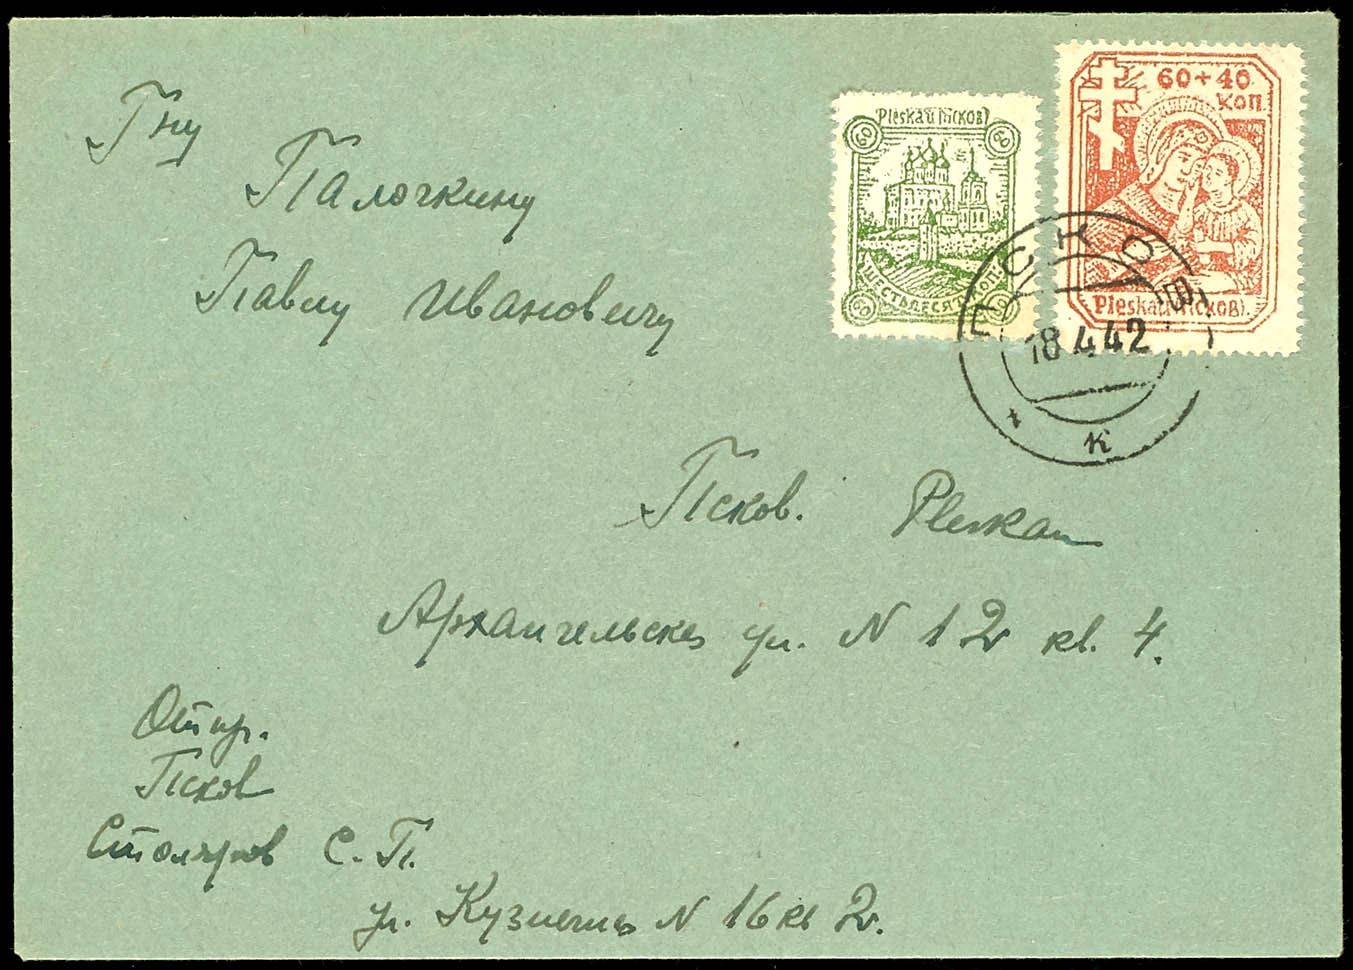 Гну
Палочкину
Павлу Ивановичу
Pleskau Псковъ
60 60
ШЕСТЬДЕСЯТ КОП.
60 60
60+40
коп.
Pleskau (Псковъ).
ПСКОВ
18.4.42
к
Псков. Pleskau
Архангельская ул. N 12 кв. 4.
Отпр.
Псков
Столяров С. П.
ул. N 16 кв 2.